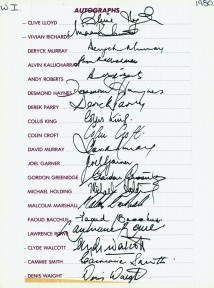 W.I. AUTOGRAPHS 1980
- CLIVE LLOYD Clive Lloyd
- VIVIAN RICHARDS
- DERYCK MURRAY Deryck Murray
- ALVIN KALLICHARRAN
- ANDY ROBERTS
- DESMOND HAYNES Desmond Haynes
- DEREK PARRY Derek Parry
- COLLIS KING Collis King.
- COLIN CROFT Colin Croft
- DAVID MURRAY David Murray
- JOEL GARNER Joel Garner
- GORDON GREENIDGE Gordon Greenidge
- MICHAEL HOLDING Michael Holding
- MALCOLM MARSHALL
- FAOUD BACCHUS Faoud Bacchus
- LAWRENCE ROWE Lawrence Rowe
- CLYDE WALCOTT Clyde Walcott
- CAMMIE SMITH Cammie Smith
- DENIS WAIGHT Denis Waight